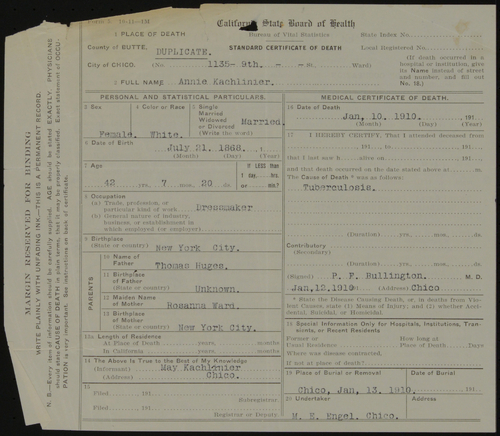 Form 5 10-11-131
California State Board of Health
1 PLACE OF DEATH
Bureau of Vital Statistics
State Index No.
County of BUTTE, DUPLICATE.
STANDARD CERTIFICATE OF DEATH
Local Registered No.
City of CHICO. (No. 1135- 9th. - - St. Ward)
(If death occurred in a hospital or institution, give its Name instead of street and number, and fill out No. 18.)
2 FULL NAME Annie Kachlinier.
PERSONAL AND STATISTICAL PARTICULARS.
3 Sex Female.
4 Color or Race White.
5 Single Married Widowed or Divorced (Write the word) Married.
6 Date of Birth July 21. 1868.
(Month) (Day) (Year)
7 Age 42 yrs. 7 mos. 20 ds.
IF LESS than 1 day, hrs. or min?
8 Occupation
(a) Trade, profession, or particular kind of work Dressmaker
(b) General nature of industry, business, or establishment in which employed (or employer)
9 Birthplace
(State or country) New York City.
PARENTS
10 Name of Father Thomas Huges.
11 Birthplace of Father
(State or country) Unknown.
12 Maiden Name of Mother Rosanna Ward.
13 Birthplace of Mother
(State or country) New York City.
13a Length of Residence
At Place of Death years, months
In California years, months
14 The Above Is True to the Best of My Knowledge
(Informant) May Kachlinier
(Address) Chico.
15
Filed 191
Subregistrar.
Filed 191
Registrar or Deputy
MEDICAL CERTIFICATE OF DEATH.
16 Date of Death Jan, 10. 1910. 191
(Month) (Day) (Year)
17 I HEREBY CERTIFY, That I attended deceased from
191 to 191
that I last saw h alive on 191
and that death occurred on the date stated above at m.
The Cause of Death * was as follows:
Tuberculosis.
(Duration) yrs. mos. ds.
Contributory
(Secondary)
(Duration) yrs. mos. ds.
(Signed) P. F. Bullington. M. D.
Jan,12.1910 (Address) Chico
* State the Disease Causing Death, or, in deaths from Violent Causes, state (1) Means of Injury; and (2) whether Accidental, Suicidal, or Homicidal.
18 Special Information Only for Hospitals, Institutions, Transients, or Recent Residents
Former or Usual Residence
How long at Place of Death Days
Where was disease contracted,
if not at place of death?
19 Place of Burial or Removal
Date of Burial
Chico, Jan, 13. 1910. 191
20 Undertaker
Address
M. E. Engel. Chico.
MARGIN RESERVED FOR BINDING
WRITE PLAINLY WITH UNFADING INK.—THIS IS A PERMANENT RECORD.
N. B.—Every item of information should be carefully supplied. AGE should be stated EXACTLY. PHYSICIANS should state CAUSE OF DEATH in plain terms, that it may be properly classified. Exact statement of OCCUPATION is very important. See instructions on back of certificate.